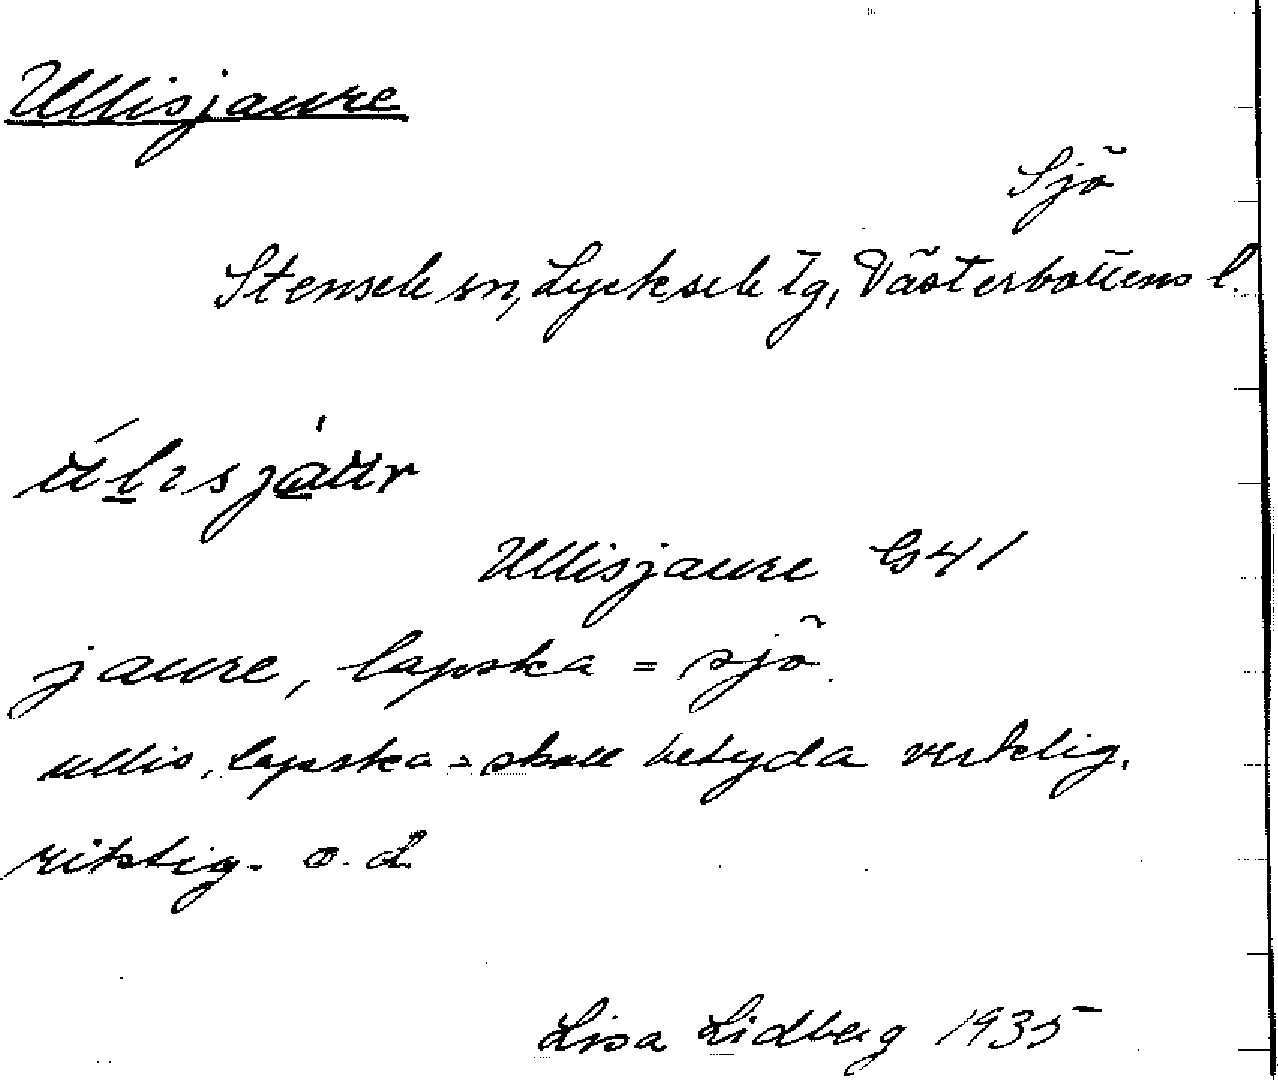 Ullisjaure
Sjö
Stensele sn, Lycksele tg, Västerbottens l.
Ullisjaure Gs 41
jaure, lapska = sjö.
ullis, lapska = skall betyda verklig,
riktig. o. d.
Lisa Lidberg 1935